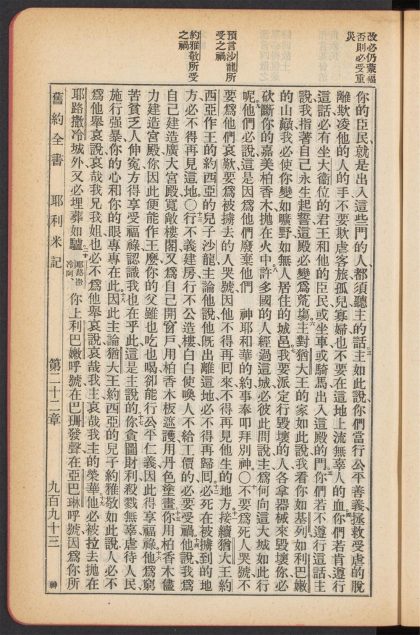 改必仍蒙福
否則必受重
災
預言沙龍所
受之禍
約雅敬所受
之禍
你的臣民就是出入這些門的人都須聽主的話主如此說你們當行公平善義拯救受虐的脫
離欺凌他的人的手不要欺虐客旅孤兒寡婦也不要在這地上流無辜人的血你們若肯遵行
這話必有坐大衛位的君王和他的臣民或坐車或騎馬出入這殿的門你們若不遵行這話主
說我指着自己永生起誓這殿必變爲荒塲主對猶大王的家如此說我看你如基列如利巴嫩
的山巔我必使你變如曠野如無人居住的城邑我要派定行毀壞的人各拿器械來毀壞你必
砍斷你的嘉美柏香木拋在火中許多國的人經過這城必彼此問說主爲何向這大城如此行
呢他們必說這是因爲他們廢棄他們　神耶和華的約事奉叩拜別神〇不要爲死人哭號不
要爲他們哀歎要爲被擄去的人哭號因他不得再囘來不得再見他生的地方接續猶大王約
西亞作王的約西亞的兒子沙龍主論他說他旣出離這地必不得再歸囘必死在被擄到的地
方必不得再見這地〇行不義建房行不公造樓白白使喚人不給工價的必要受禍他說我爲
自己建造廣大宮殿寬敞樓閣又爲自己開窗戶用柏香木板遮護用丹色塗畫你用柏香木儘
力建造宮殿你因此便能作王麼你的父雖也吃也喝卻能行公平仁義因此得享福祿他爲窮
苦貧乏人伸寃方得享受福祿認識我也在乎此這是主說的你貪圖財利殺戮無辜虐待人民
施行強暴你的心和你的眼專專在此因此主論猶大王約西亞的兒子約雅敬如此說人必不
爲他舉哀說哀哉我兄我姐也必不爲他舉哀說哀哉我主哀哉我主的榮華他必被拉去拋在
耶路撒冷城外又必埋葬如驢耶路撒冷阿你上利巴嫩呼號在巴珊發聲在亞巴琳呼號因爲你所
舊約全書　耶利米記　第二十二章　九百九十三　神